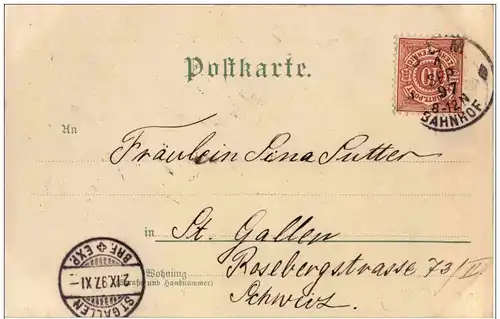 Postkarte.
ULM
SEP
97
8-12N
BAHNHOF
10
An
Fräulein Lina Sutter
in St. Gallen
Wohnung
(Straße und Hausnummer)
Rosebergstrasse 73/II
Schweiz
ST. GALLEN
2.IX.97.XI-
BRF. EXP.